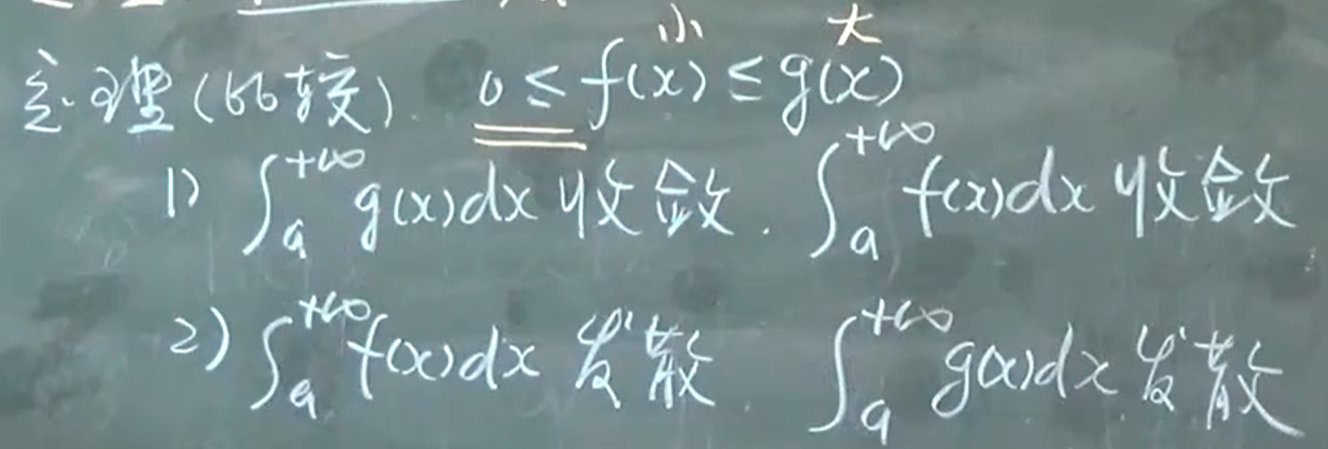 小 大
定理(比较). 0 ≤ f(x) ≤ g(x)
1) ∫_a^{+∞} g(x)dx 收敛. ∫_a^{+∞} f(x)dx 收敛
2) ∫_a^{+∞} f(x)dx 发散. ∫_a^{+∞} g(x)dx 发散